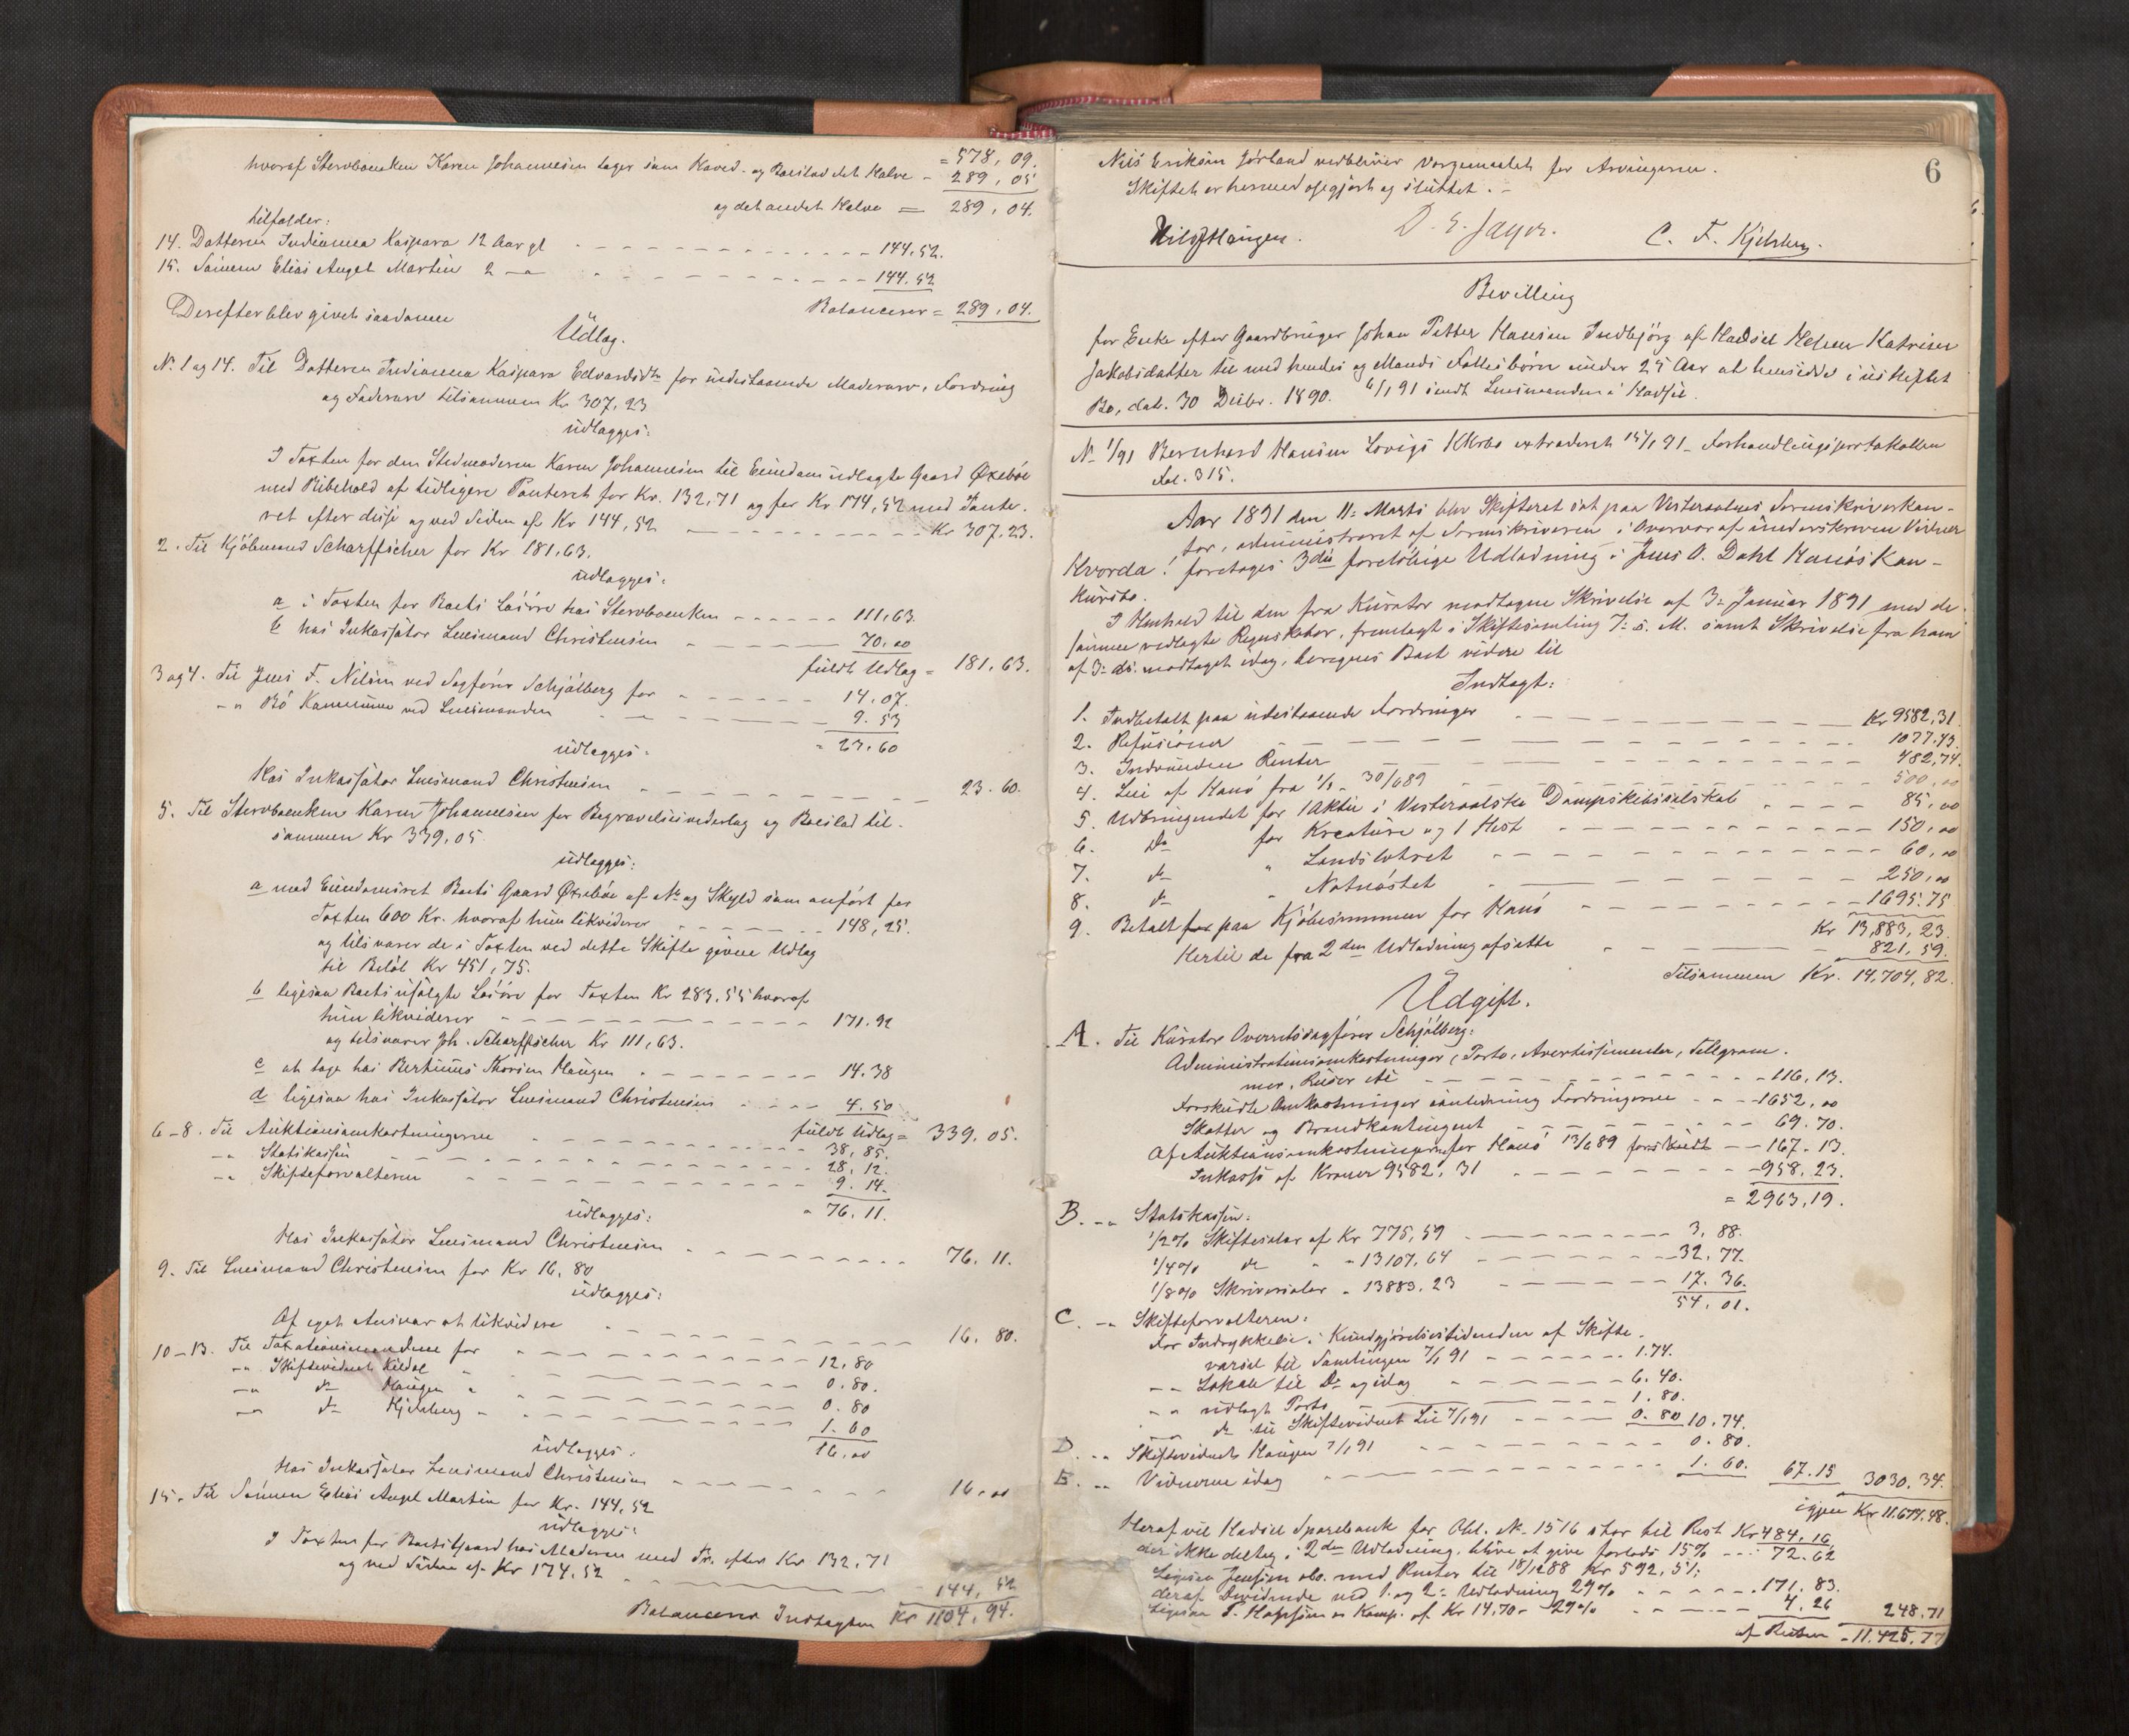 = 578,09.
hvoraf Stervboenken Karen Johannesen tager som Hoved- og Boeslod det Halve - 289,05
og det andet Halve = 289,04.
tilfalder:
14. Datteren Indianna Kaspara 12 Aar gl - - - 144,52.
15. Sönnen Elias Angel Martin 2 -"- - - - 144.52
Balancerer = 289,04.
Derefter blev givet saadanne
Udlæg.
No 1 og 14. Til Datteren Indianna Kaspara Edvardsdtr for udestaaende Mødrearv, Fordring
og Fædrearv tilsammen Kr 307,23
udlægges:
I Taxten for den Stedmoderen Karen Johannesen til Eiendom udlagte Gaard Øxebøe
med Bibehold af tidligere Panteret for Kr. 132,71 og for Kr 174,52 med Pante-
ret efter disse og ved Siden af Kr 144,52 - - - Kr 307.23.
2. Til Kjöbmand Scharffscher for Kr 181,63.
udlægges:
a i Taxten for Boets Lösöre hos Stervboenken - - - 111,63.
b hos Inkassator Lensmand Christensen - - - 70,00
fuldt Udlæg = 181.63.
3 og 4. Til Jens F. Nilsen ved Sagförer Schjölberg for - - - 14.07.
-"- Bö Kommune ved Lensmanden - - - 9.53
= 23,60
udlægges:
Hos Inkassator Lensmand Christensen - - - 23.60.
5. Til Stervboenken Karen Johannesen for Begravelsesvederlag og Boeslod til-
sammen Kr 339,05.
udlægges:
a med Eiendomsret Boets Gaard Øxebøe af No og Skyld som anfört for
Taxten 600 Kr. hvoraf hun likviderer - - - 148,25.
og tilsvarer de i Taxten ved dette Skifte givne Udlæg
til Belöb Kr 451,75.
b ligesaa Boets usolgte Lösöre for Taxten Kr 283,55 hvoraf
hun likviderer - - - 171.92
og tilsvarer Joh. Scharffscher Kr 111,63.
c at tage hos Bertinus Thorsen Haugen - - - 14.38
d ligesaa hos Inkassator Lensmand Christensen - - - 4.50
fuldt Udlæg = 339.05.
6-8. Til Auktionsomkostningerne - - - 38,85.
-"- Statskassen - - - 28,12.
-"- Skifteforvalteren - - - 9.14.
= 76.11.
udlægges:
Hos Inkassator Lensmand Christensen - - - 76.11.
9. Til Lensmand Christensen for Kr 16,80
udlægges:
Af eget Ansvar at likvidere - - - 16.80.
10-13. Til Taxationsmændene for - - - 12,80
-"- Skiftevidnet Kildal " - - - 0.80.
-"- do Haugen " - - - 0.80
-"- do Kjelsberg " - - - 1.60
16,00
udlægges:
Hos Inkassator Lensmand Christensen - - - 16.00
15. Til Sönnen Elias Angel Martin for Kr. 144,52
udlægges:
I Taxten for Boets Gaard hos Moderen med Pr. efter Kr 132,71
og ved Siden af Kr 174.52 - - - 144,52
Balancerer Indtægten Kr 1104,94.
6
Nils Eriksen Jörland vedbliver Værgemaalet for Arvingerne.
Skiftet er hermed opgjort og sluttet.-
Nils Haugen. D. E. Jayer. C. F. Kjelsberg.
Bevilling
for Enke efter Gaardbruger Johan Petter Hansen Indbjörg af Hadsel Helene Katrine
Jakobsdatter til med hendes og Mands Fællesbörn under 25 Aar at hensidde i uskiftet
Bo, dat. 30 Decbr. 1890. 6/1 91 sendt Lensmanden i Hadsel.
No 1/91 Bernhard Hansen Lovigs KKrbo extraderet 15/1 91 - Forhandlingsprotokollen
Fol. 315.
Aar 1891 den 11: Marts blev Skifteret sat paa Vesteraalens Sorenskriverkon-
tor, administreret af Sorenskriveren i Overvær af underskrevne Vidner
Hvorda: foretoges 3die foreløbige Udlodning i Jens O. Dahl Hanös Kon-
kursbo.
I Henhold til den fra Kurator modtagne Skrivelse af 3: Januar 1891 med de
samme vedlagte Regnskaber, fremlagt i Skiftesamling 7: s. M. samt Skrivelse fra ham
af 3: ds. modtaget idag, beregnes Boet videre til
Indtægt:
1. Indbetalt paa udestaaende Fordringer - - - Kr 9582,31.
2. Refusioner - - - 1077.43.
3. Indvundne Renter - - - 482,74.
4. Leie af Hanö fra 1/1 - 30/6 89 - - - 500,00
5. Udbringendet for 1 Aktie i Vesteraalske Dampskibsselskab - - - 85,00
6. do for Kreature og 1 Hest - - - 150,00
7. do " Landslottet - - - 60,00
8. do " Notnöstet - - - 250,00
9. Betalt for paa Kjöbesummen for Hanö - - - 1695.75
Kr 13,883,23.
Hertil de fra 2den Udlodning afsatte - - - 821,59.
Tilsammen Kr. 14,704,82.
Udgift.
A. Til Kurator Overretssagförer Schjölberg:
Administrationsomkostninger, (Porto, Avertissementer, Telegram-
mer, Reiser etc - - - 116,13.
Forskudte Omkostninger i anledning Fordringerne - - - 1652,00
Skatter og Brandkontingent - - - 69.70.
Af Auktionsomkostningerne for Hanö 13/6 89 forskudt - - - 167.13.
Inkasso af Kroner 9582,31 - - - 958.23.
= 2963,19.
B. -"- Statskassen:
1/2% Skiftesalær af Kr 775,59 - - - 3,88.
1/4% do " " 13107,64 - - - 32.77.
1/8% Skriversalær " 13883.23 - - - 17.36.
54.01.
C. -"- Skifteforvalteren:
For Indrykkelse i Kundgjörelsestidenden af Skifte-
varsel til Samlingen 7/1 91 - - - 1.74.
-"- Lokale til Do og idag - - - 6.40.
-"- udlagt Porto - - - 1.80.
-"- do til Skiftevidnet Lie 7/1 91 - - - 0.80 10.74.
D. -"- Skiftevidnet Haugen 7/1 91 - - - 0.80.
E. -"- Vidnerne idag - - - 1.60. 67.15 3030.34.
igjen Kr 11.674.48.
Heraf vil Hadsel Sparebank for Obl. No 1516 stor til Rest Kr 484,16,
der ikke deltog i 2den Udlodning, blive at give forlods 15% - - - 72.62
Ligesaa Jensen obs. med Renter til 18/12 88 Kr 592,51:
deraf Dividende ved 1. og 2: Udlodning 29% - - - 171.83.
Ligesaa T. & Komp. af Kr 14.70 - 29% - - - 4.26 248.71
af Resten - 11.425.77